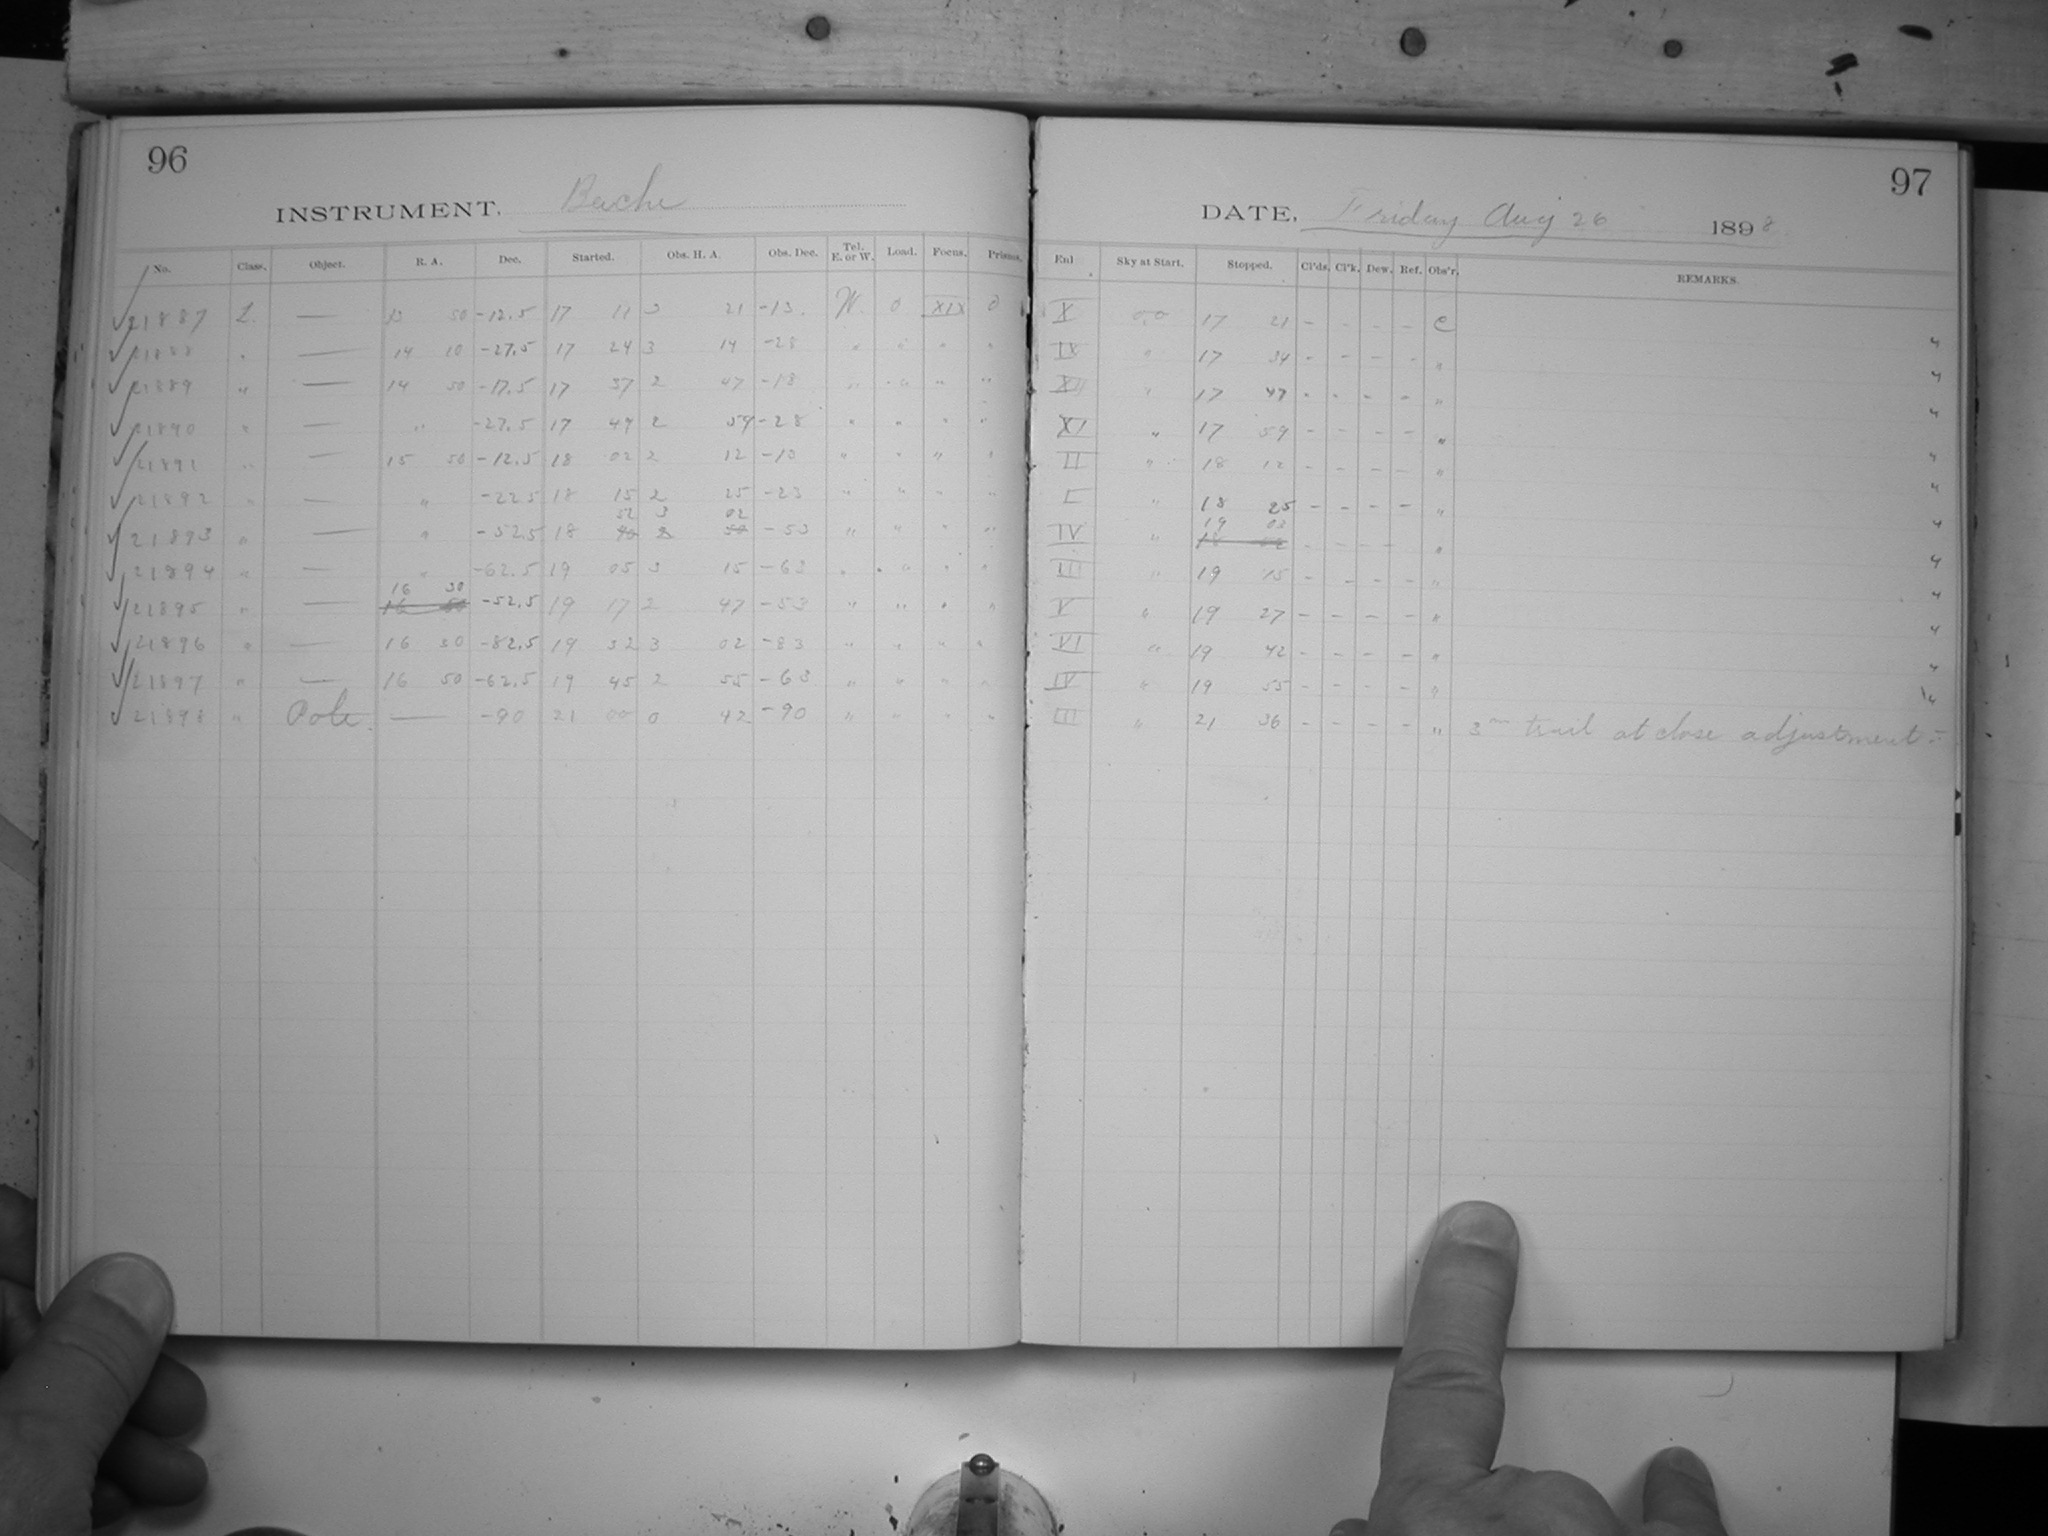 96
INSTRUMENT. Bache
No. Class. Object. R. A. Dec. Started. Obs. H. A. Obs. Dec. Tel. E. or W. Load. Focus. Prisms.
21887 L. — 13 50 -12.5 17 11 3 21 -13. W. 0 XIX 0
21888 " — 14 10 -27.5 17 24 3 14 -28 " " " "
21889 " — 14 50 -17.5 17 37 2 47 -18 " " " "
21890 " — " -27.5 17 49 2 59 -28 " " " "
21891 " — 15 50 -12.5 18 02 2 12 -13 " " " "
21892 " — " -22.5 18 15 2 25 -23 " " " "
52 3 02
21893 " — " -52.5 18 40 2 50 -53 " " " "
21894 " — " -62.5 19 05 3 15 -63 " " " "
16 30
21895 " — 16 50 -52.5 19 17 2 47 -53 " " " "
21896 " — 16 30 -82.5 19 32 3 02 -83 " " " "
21897 " — 16 50 -62.5 19 45 2 55 -63 " " " "
21898 " Pole — -90 21 00 0 42 -90 " " " "
97
DATE, Friday Aug 26 1898
Enl Sky at Start. Stopped. Cl'ds. Cl'k. Dew. Ref. Obs'r. REMARKS.
X 0,0 17 21 - - - - C
IX " 17 34 - - - - "
XII " 17 47 - - - - "
XI " 17 59 - - - - "
II " 18 12 - - - - "
I " 18 25 - - - - "
19 02
IV " 18 - - - - "
III " 19 15 - - - - "
V " 19 27 - - - - "
VI " 19 42 - - - - "
IV " 19 55 - - - - "
III " 21 36 - - - - " 3m trail at close adjustment